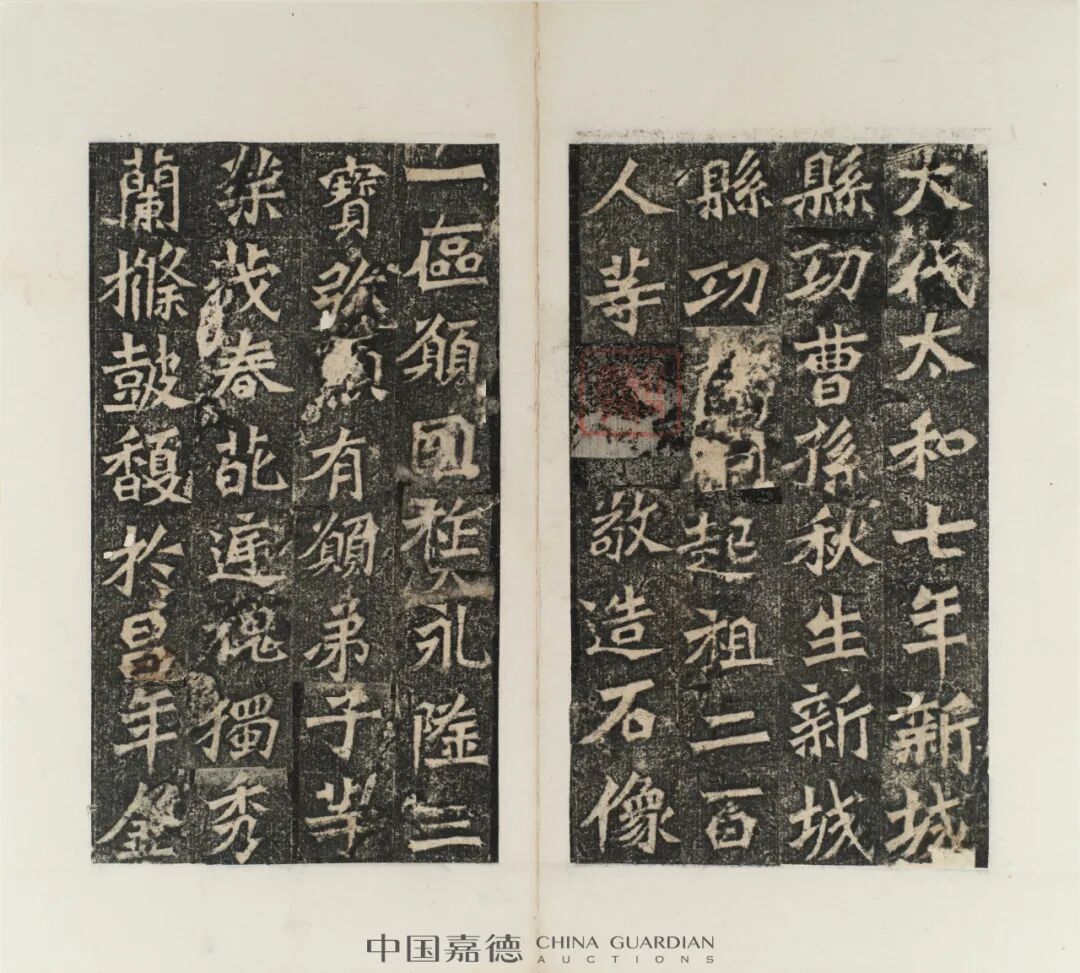 大代太和七年新城
縣功曹孫秋生新城
縣功起祖二百
人等敬造石像
一區願國祚永隆三
寶弥有願弟子等
榮茂春葩庭槐獨秀
蘭條鼓馥於昌年金
中国嘉德 CHINA GUARDIAN
AUCTIONS